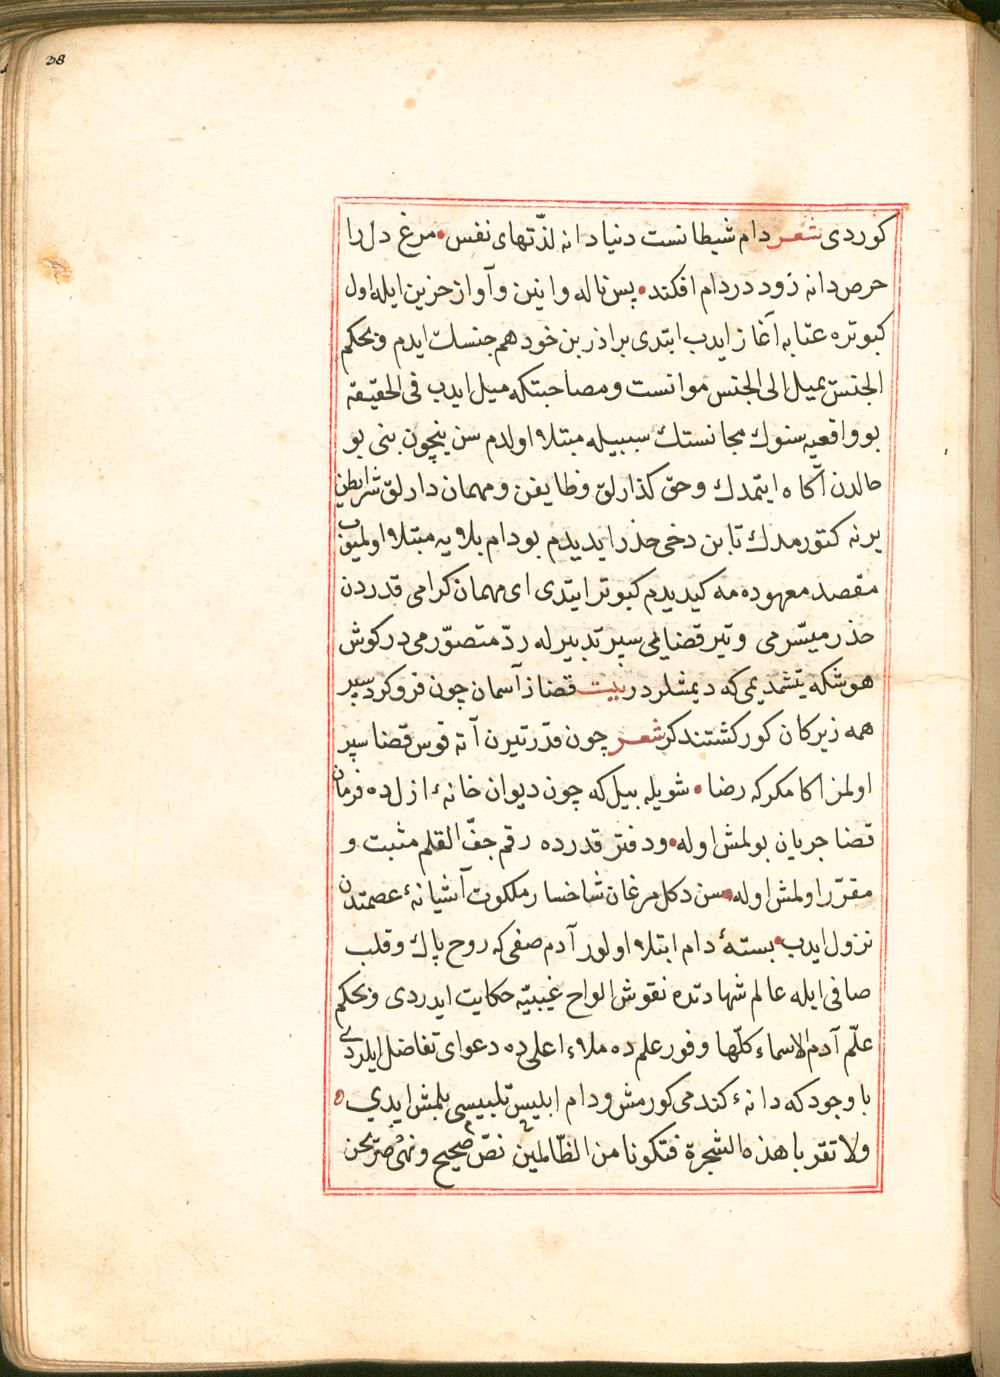 208
كوردی شعر دام شیطانست دنیا دانه لذّتهای نفس • مرغ دل را
حرص دانه زود در دام افکند • پس ناله و انین و آواز حزین ایله اول
کبوتره عتابه آغاز ایدب ایتدی برادر بن خود هم جنسك ایدم و بحکم
الجنس یمیل الی الجنس موانست و مصاحبتکه میل ایدب فی الحقیقة
بو واقعیه سنوك مجانستك سببیله مبتلا اولدم سن نیچون بنی بو
حالدن آکاه ایتمدك و حق کذارلق وظایفن و مهمان دارلق شرایطن
یرنه کتورمدك تا بن دخی حذر ایدیدم بو دام بلایه مبتلا اولمیوب
مقصد معهودمه کیدیدم کبوتر ایتدی ای مهمان کرامی قدردن
حذر میسّرمی و تیر قضایی سپر تدبیرله ردّ متصوّرمی در کوش
هوشکه یتشمدیمی که دیمشلردر بیت قضا ز آسمان چون فرو کرد سپر
همه زیرکان کور کشتند کر شعر چون قدر تیرن آته قوس قضا سپر
اولمز اکا مکر که رضا • شویله بیل که چون دیوان خانهٔ ازلده فرمان
قضا جریان بولمش اوله • و دفتر قدرده رقم جفّ القلم مثبت و
مقرّر اولمش اوله • سن دکل مرغان شاخسار ملکوت آشیانهٔ عصمتدن
نزول ایدب • بستهٔ دام ابتلا اولور آدم صفی که روح پاك و قلب
صافی ایله عالم شهادتده نقوش الواح غیبیّه حکایت ایدردی و بحکم
علّم آدم الاسماء کلّها وفور علمده ملاء اعلی ده دعوای تفاضل ایلردی
با وجود که دانهٔ کندمی کورمش و دام ابلیس تلبیسی بلمش ایدی
ولا تقربا هذه الشجرة فتکونا من الظّالمین نصّ صحیح و نهی صریحن